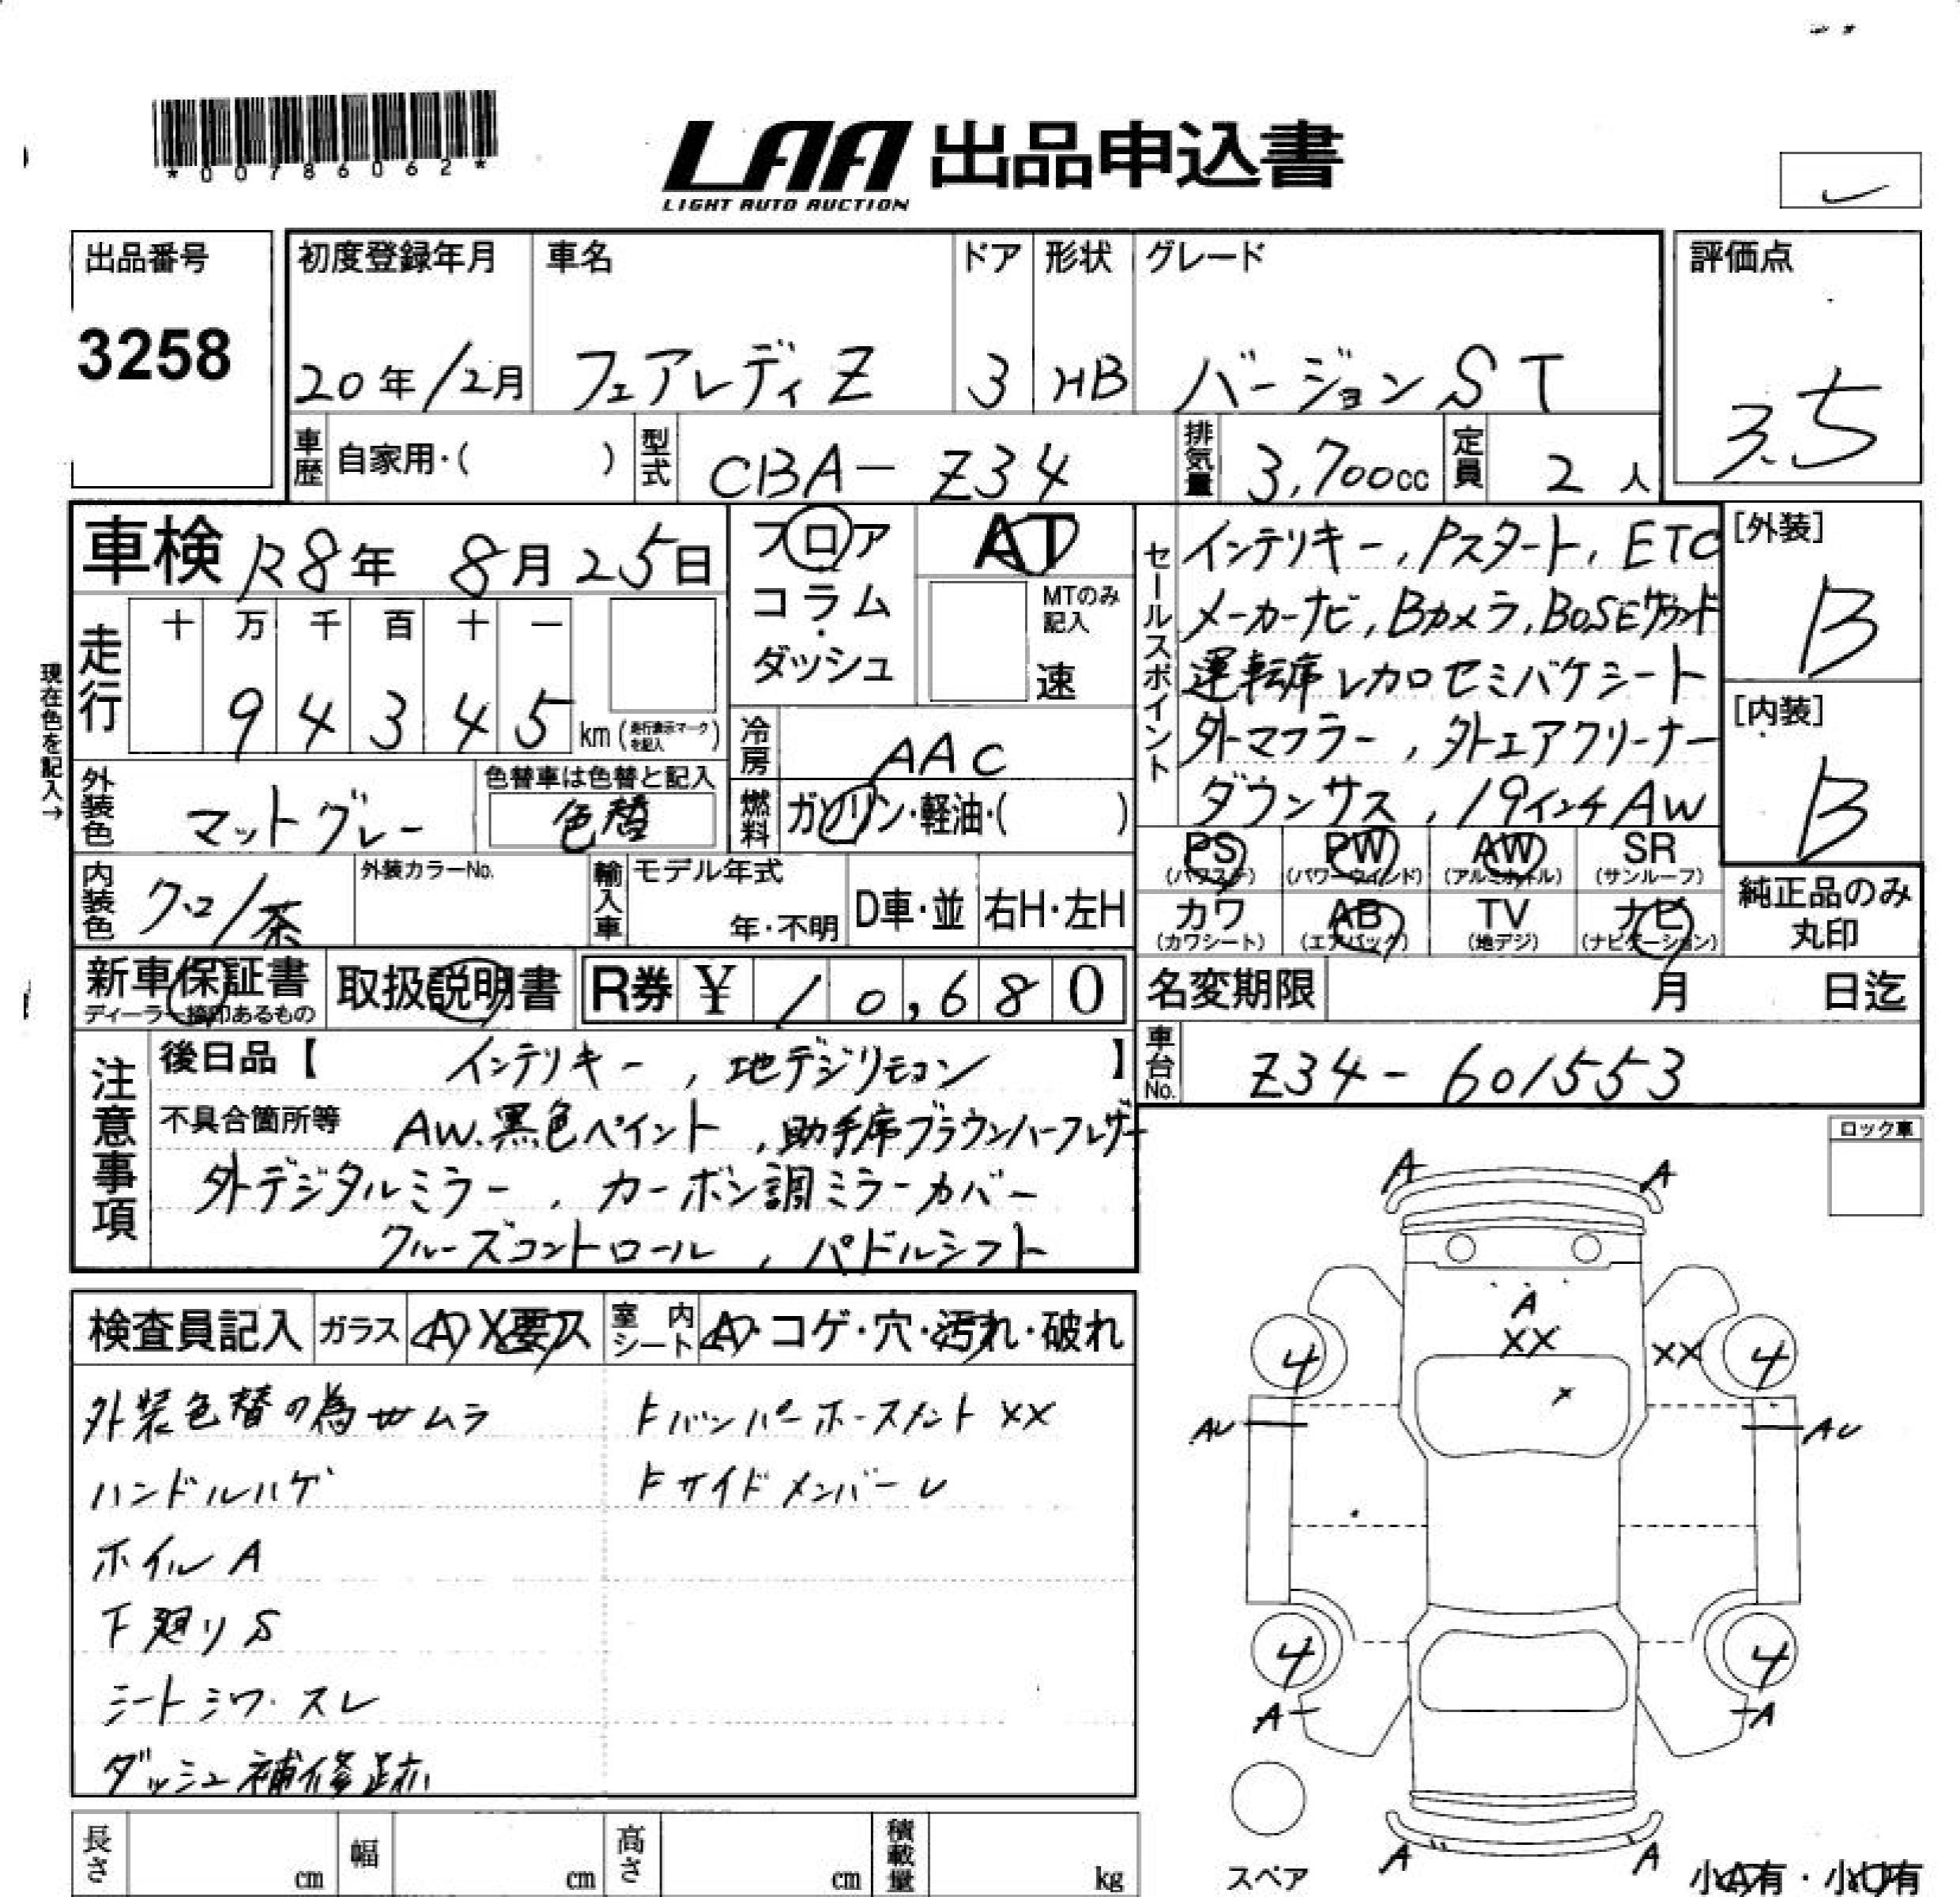 *00786062*
LAA 出品申込書
LIGHT AUTO AUCTION
出品番号
3258
初度登録年月
20年12月
車名
フェアレディZ
ドア
3
形状
HB
グレード
バージョンST
評価点
3.5
車歴 自家用・( )
型式 CBA-Z34
排気量 3,700cc
定員 2人
車検 R8年 8月25日
フロア
コラム
・
ダッシュ
AT
MTのみ
記入
速
走行
十 万 千 百 十 一
9 4 3 4 5 km (走行表示マークを記入)
現在色を記入→
冷房 AAC
外装色 マットグレー
色替車は色替と記入
色替
燃料 ガソリン・軽油・( )
内装色 クロ/茶
外装カラーNo.
輸入車 モデル年式
年・不明
D車・並
右H・左H
セールスポイント
インテリキー, Pスタート, ETC
メーカーナビ, Bカメラ, BOSEサウンド
運転席レカロセミバケシート
外マフラー, 外エアクリーナー
ダウンサス, 19インチAW
[外装]
B
[内装]
B
PS (パワステ)
PW (パワーウインド)
AW (アルミホイル)
SR (サンルーフ)
カワ (カワシート)
AB (エアバック)
TV (地デジ)
ナビ (ナビゲーション)
純正品のみ
丸印
新車保証書
ディーラー捺印あるもの
取扱説明書
R券 ¥ 10,680
名変期限 月 日迄
車台No. Z34-601553
注意事項
後日品【 インテリキー, 地デジリモコン 】
不具合箇所等 AW.黒色ペイント, 助手席ブラウンハーフレザー
外デジタルミラー, カーボン調ミラーカバー
クルーズコントロール, パドルシフト
ロック車
検査員記入
ガラス A X要ス
室内シート A・コゲ・穴・汚れ・破れ
外装色替の為サムラ
ハンドルハゲ
ホイルA
下廻りS
シートシワ・スレ
ダッシュ補修跡
Fバンパーホースメント XX
Fサイドメンバー U
A A
A
XX XX
4 4
X
AU AU
4 4
A A
A A
スペア
小A有・小U有
長さ cm
幅 cm
高さ cm
積載量 kg